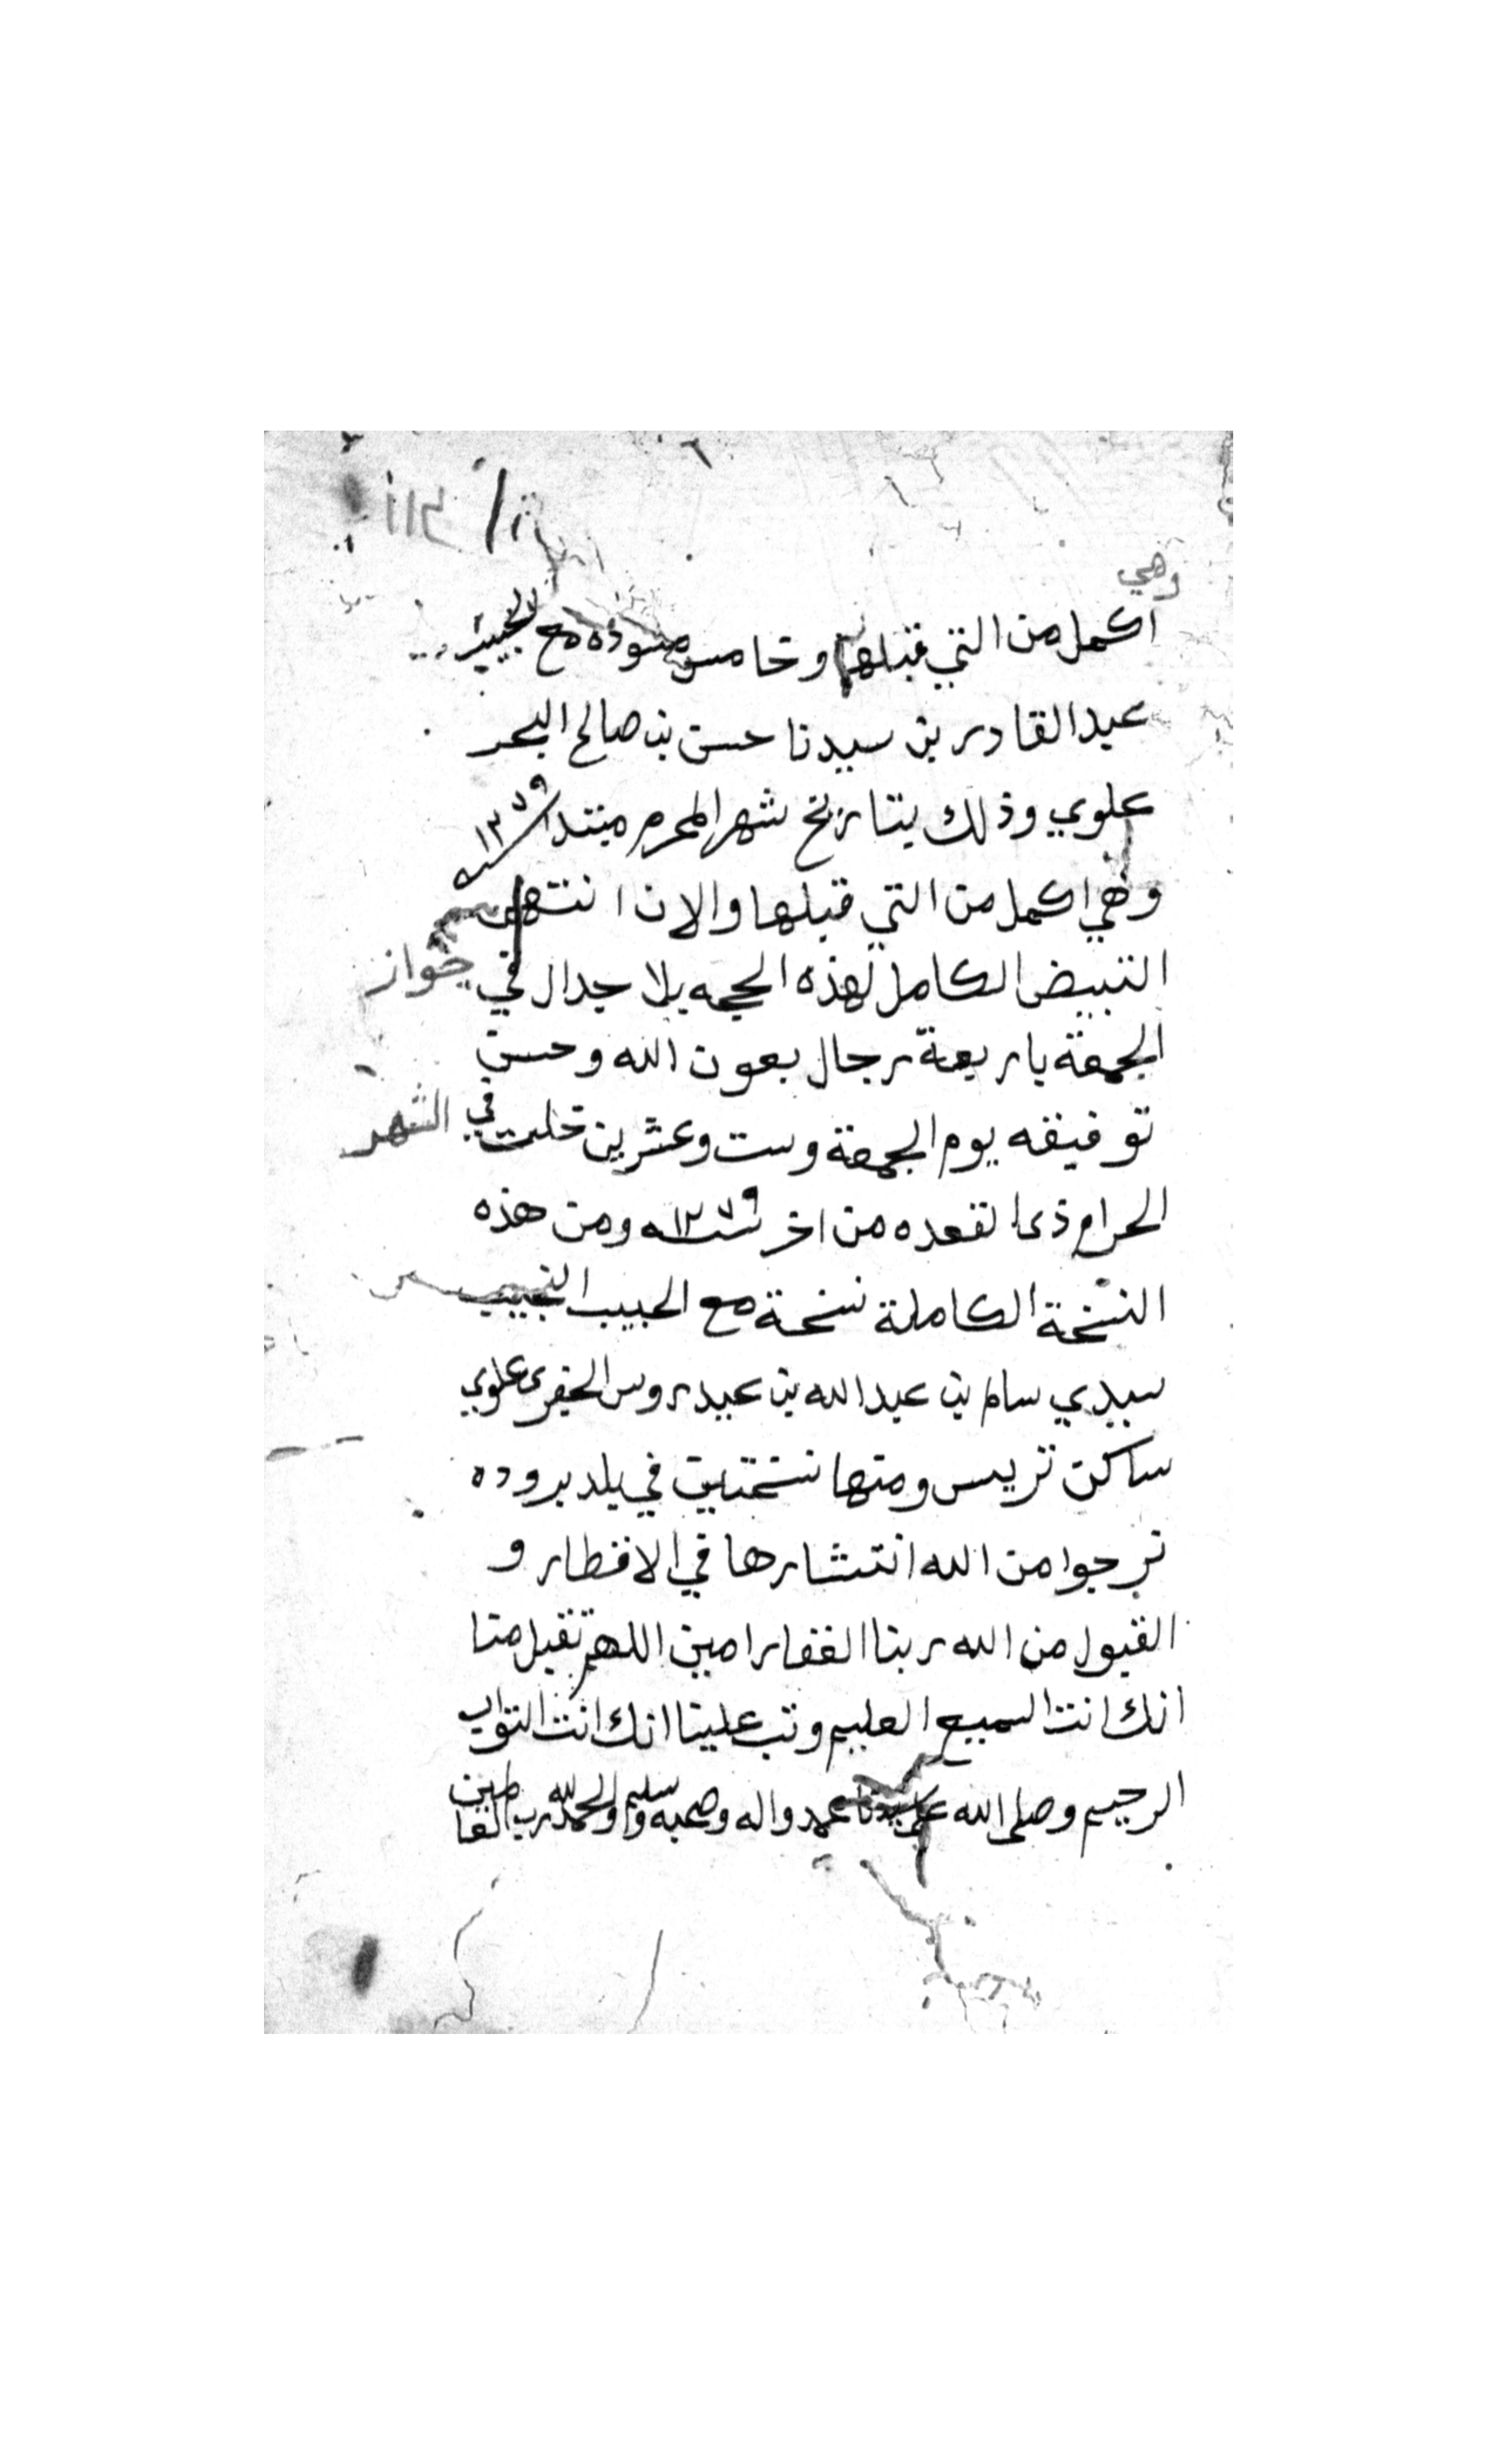 وهي
اكمل من التي قبلها وخامس مسوده مع الحبيب
عبد القادر بن سيدنا حسن بن صالح البحر
علوي وذلك بتاريخ شهر المحرم مبتدا سنه ١٢٧٩
وهي اكمل من التي قبلها والان انتهى
التبيض الكامل لهذه الحجه بلا جدال في جواز
الجمعة باربعة رجال بعون الله وحسن
توفيقه يوم الجمعة وست وعشرين خلت في الشهر
الحرام ذي القعده من اخر سنه ١٢٧٩ ومن هذه
النسخة الكاملة نسخة مع الحبيب النجيب
سيدي سالم بن عبد الله بن عيدروس الجفري علوي
ساكن تريس ومنها نسختين في بلد بروده
نرجوا من الله انتشارها في الاقطار و
القبول من الله ربنا الغفار امين اللهم تقبل منا
انك انت السميع العليم وتب علينا انك انت التواب
الرحيم وصلى الله على سيدنا محمد واله وصحبه وسلم والحمد لله رب العالمين